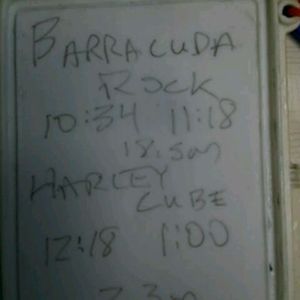 BARRACUDA
ROCK
10:34 11:18
18.5m
HARLEY
CUBE
12:18 1:00